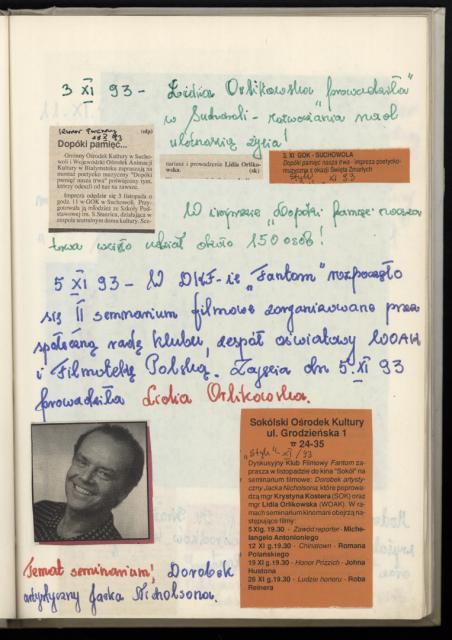 3 XI 93 - Lidia Orlikowska "prowadziła"
w Suchowoli - rozważania nad
ulotnością życia!
Kurier Poranny
(zdp)
Dopóki pamięć...
Gminny Ośrodek Kultury w Sucho-
woli i Wojewódzki Ośrodek Animacji
Kultury w Białymstoku zapraszają na
montaż poetycko muzyczny "Dopóki
pamięć nasza trwa" poświęcony tym,
którzy odeszli od nas na zawsze.
Impreza odędzie się 3 listopada o
godz. 11 w GOK w Suchowoli. Przy-
gotowała ją młodzież ze Szkoły Pod-
stawowej im. S. Staszica, działająca w
zespole teatralnym domu kultury. Sce-
nariusz i prowadzenie Lidia Orliko-
wska. (sk)
3. XI GOK - SUCHOWOLA
Dopóki pamięć nasza trwa - impreza poetycko-
muzyczna z okazji Święta Zmarłych
"Styk" XI 93
W imprezie "Dopóki pamięć nasza
trwa wzięło udział około 150 osób!
5 XI 93 - W DKF-ie "Fantom" rozpoczęło
się II seminarium filmowe zorganizowane przez
społeczną radę klubu, zespół oświatowy WOAK
i Filmotekę Polską. Zajęcia dn 5.XI 93
prowadziła Lidia Orlikowska.
Sokólski Ośrodek Kultury
ul. Grodzieńska 1
☎ 24-35
"Styk" - XI/93
Dyskusyjny Klub Filmowy Fantom za-
prasza w listopadzie do kina "Sokół" na
seminarium filmowe: Dorobek artysty-
czny Jacka Nicholsona, które poprowa-
dzą mgr Krystyna Kostera (SOK) oraz
mgr Lidia Orlikowska (WOAK). W ra-
mach seminarium kinomani obejrzą na-
stępujące filmy:
5 XI g. 19.30 - Zawód reporter - Miche-
langelo Antonioniego
12 XI g. 19.30 - Chinatown - Romana
Polańskiego
19 XI g. 19.30 - Honor Prizzich - Johna
Hustona
26 XI g. 19.30 - Ludzie honoru - Roba
Reinera
Temat seminarium! Dorobek
artystyczny Jacka Nicholsona.